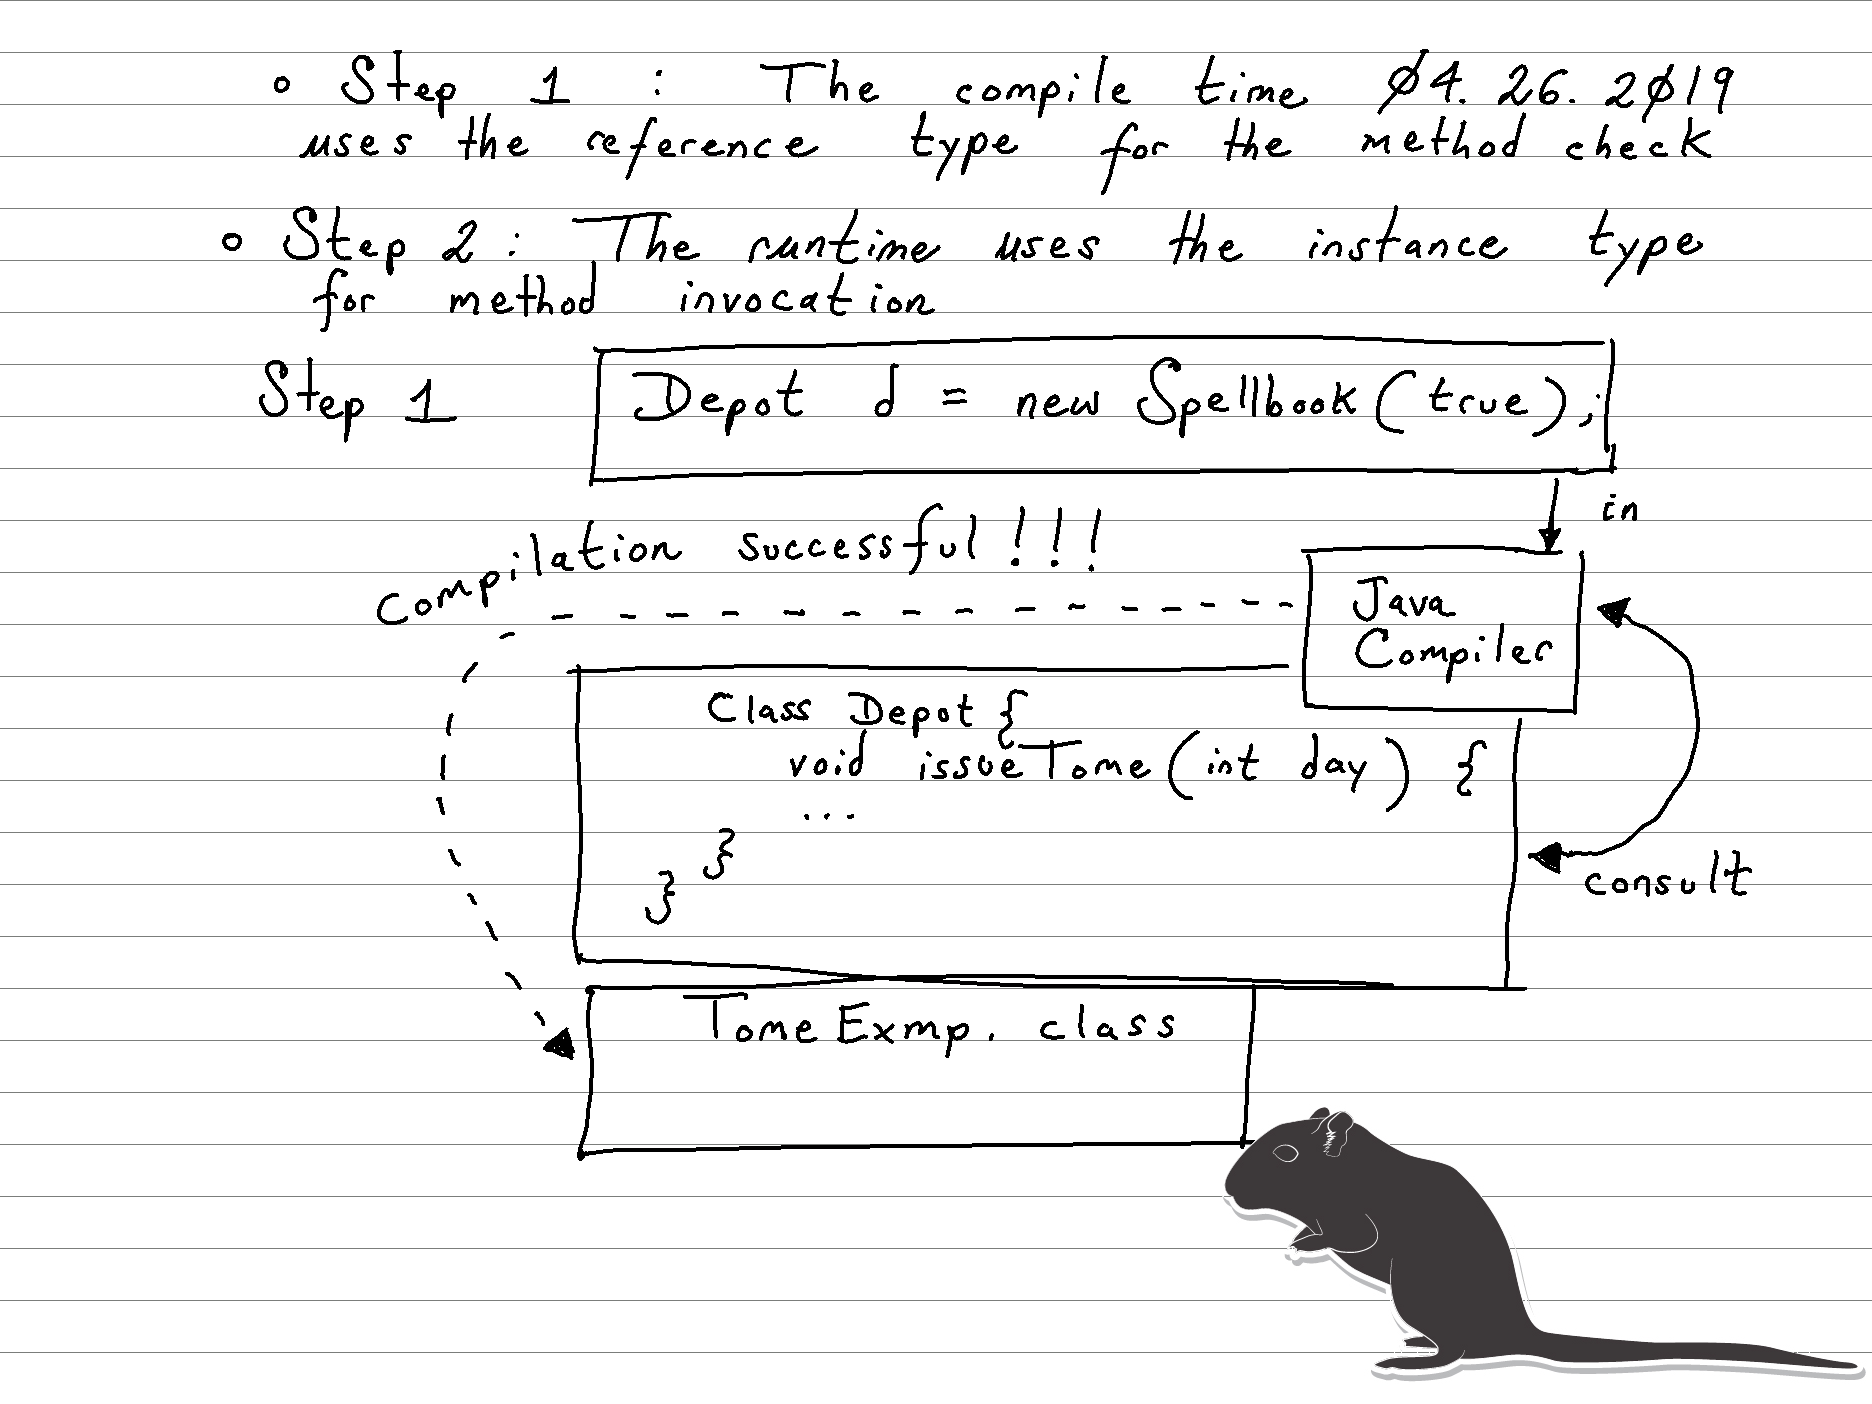 o Step 1 : The compile time 04.26.2019
uses the reference type for the method check
o Step 2 : The runtime uses the instance type
for method invocation
Step 1
Depot d = new Spellbook(true);
in
Compilation successful!!!
Java
Compiler
Class Depot {
void issueTome(int day) {
...
}
}
consult
TomeExmp.class